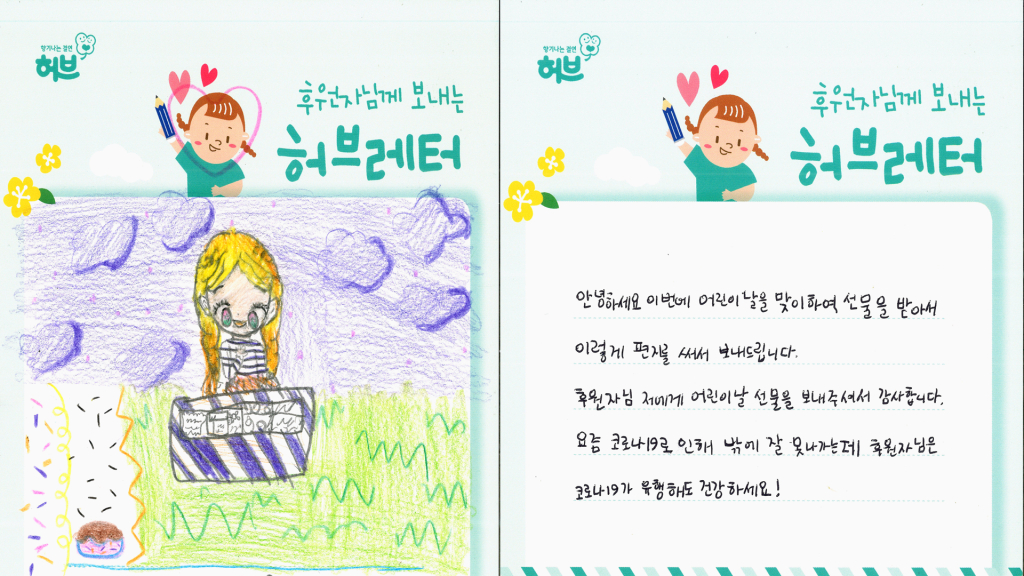 향기나는 결연
허브
후원자님께 보내는
허브레터
향기나는 결연
허브
후원자님께 보내는
허브레터
안녕하세요 이번에 어린이날을 맞이하여 선물을 받아서
이렇게 편지를 써서 보내드립니다.
후원자님 저에게 어린이날 선물을 보내주셔서 감사합니다.
요즘 코로나19로 인해 밖에 잘 못나가는데 후원자님은
코로나19가 유행해도 건강하세요!